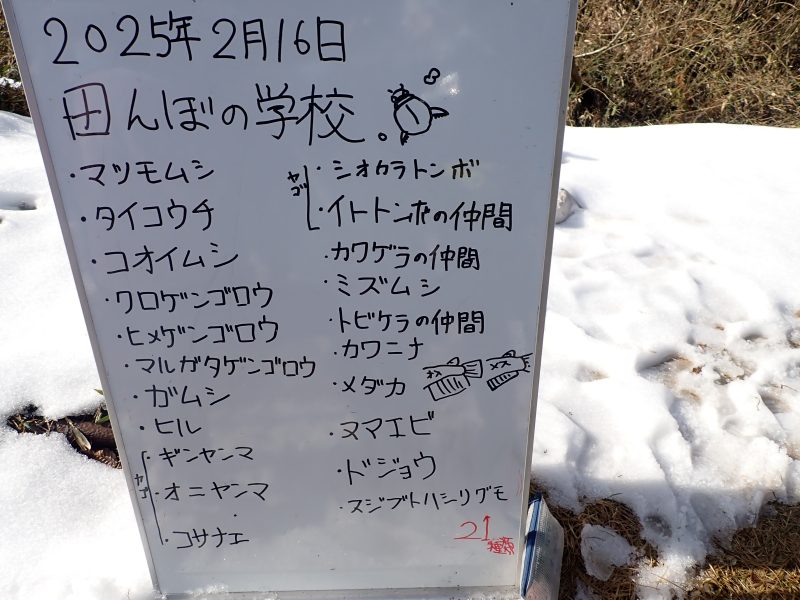 2025年2月16日
田んぼの学校。
・マツモムシ
・タイコウチ
・コオイムシ
・クロゲンゴロウ
・ヒメゲンゴロウ
・マルガタゲンゴロウ
・ガムシ
・ヒル
ヤゴ
・ギンヤンマ
・オニヤンマ
・コサナエ
ヤゴ
・シオカラトンボ
・イトトンボの仲間
・カワゲラの仲間
・ミズムシ
・トビケラの仲間
・カワニナ
・メダカ
オス
メス
・ヌマエビ
・ドジョウ
・スジブトハシリグモ
21種類